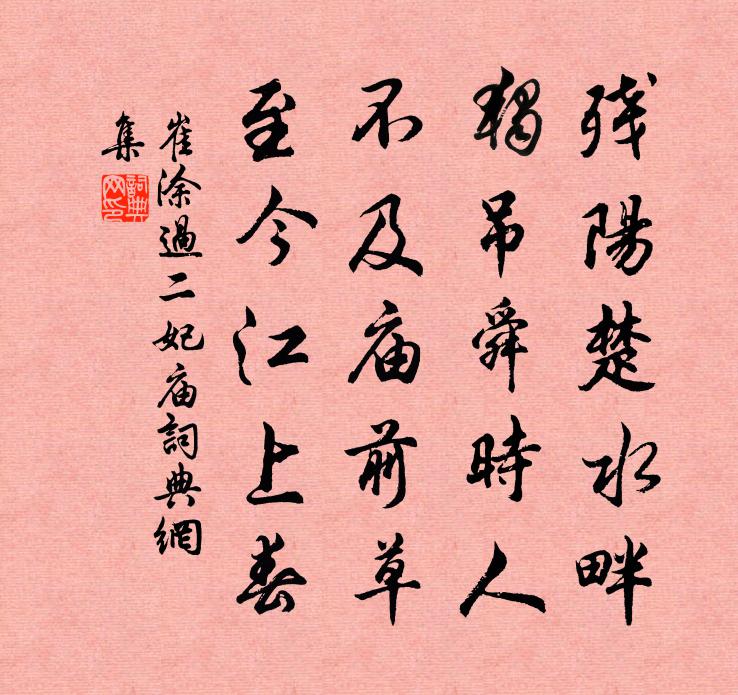 残陽楚水畔
獨吊舜時人
不及庙前草
至今江上春
崔涂過二妃庙詞典網
集
詞典
网印